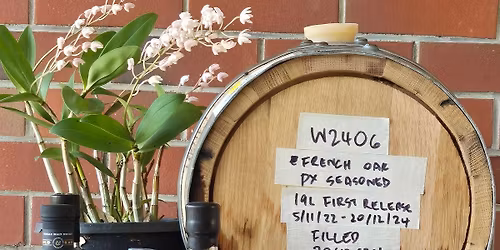 W2406
FRENCH OAK
PX SEASONED
19L FIRST RELEASE
5/11/22-20/12/24
FILLED